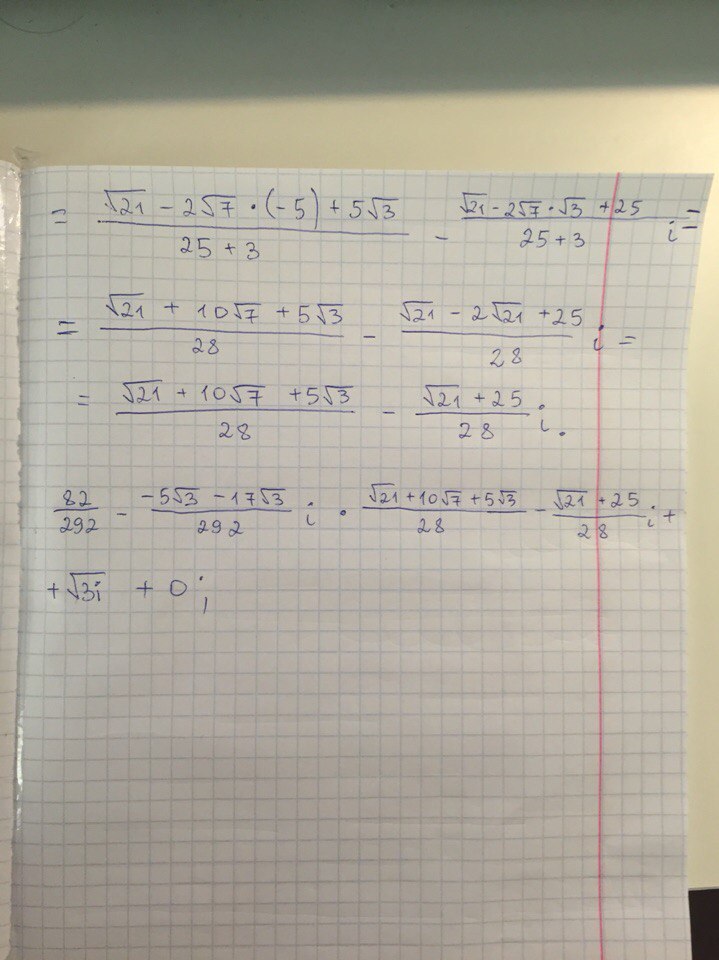 = (√21 - 2√7 · (-5) + 5√3)/(25 + 3) - (√21 - 2√7 · √3 + 25)/(25 + 3) i =
= (√21 + 10√7 + 5√3)/28 - (√21 - 2√21 + 25)/28 i =
= (√21 + 10√7 + 5√3)/28 - (√21 + 25)/28 i.
82/292 - (-5√3 - 17√3)/292 i · (√21 + 10√7 + 5√3)/28 - (√21 + 25)/28 i +
+ √3i + 0;